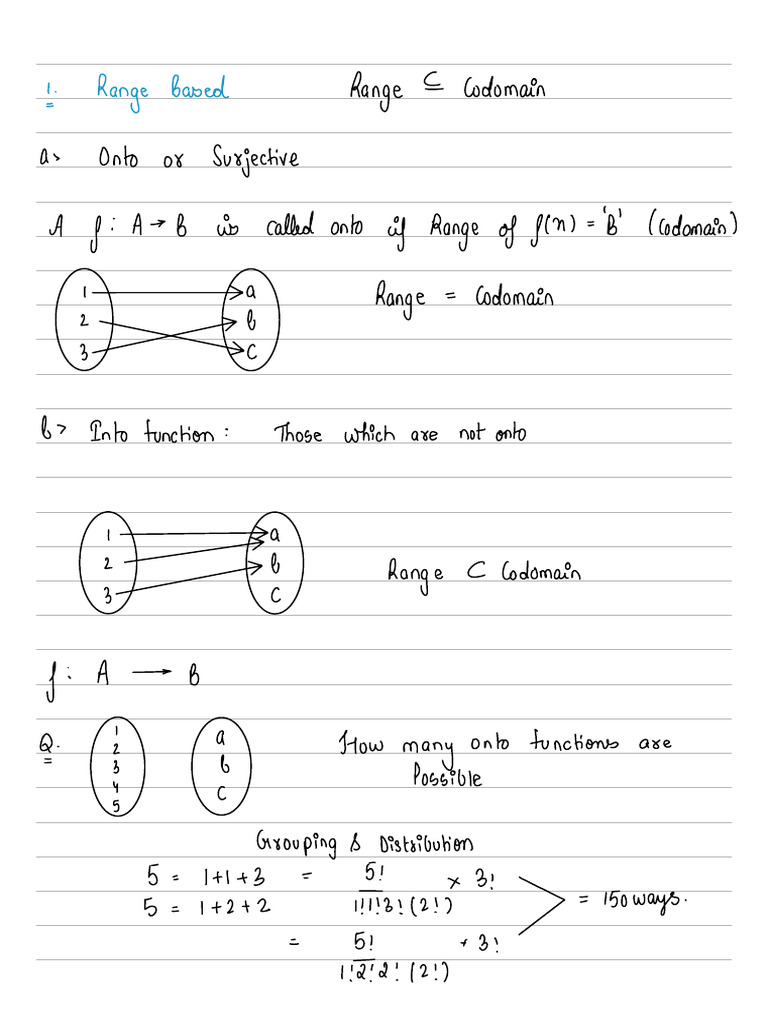 1. Range based Range ⊆ Codomain
a> Onto or Surjective
A f : A → B is called onto if Range of f(x) = 'B' (Codomain)
1 a
2 b
3 c
Range = Codomain
b> Into function : Those which are not onto
1 a
2 b
3 c
Range ⊂ Codomain
f : A → B
Q. How many onto functions are
Possible
1 a
2 b
3 c
4
5
Grouping & Distribution
5 = 1+1+3 = 5!/1!1!3!(2!) × 3!
5 = 1+2+2
= 150 ways.
= 5!/1!2!2!(2!) × 3!